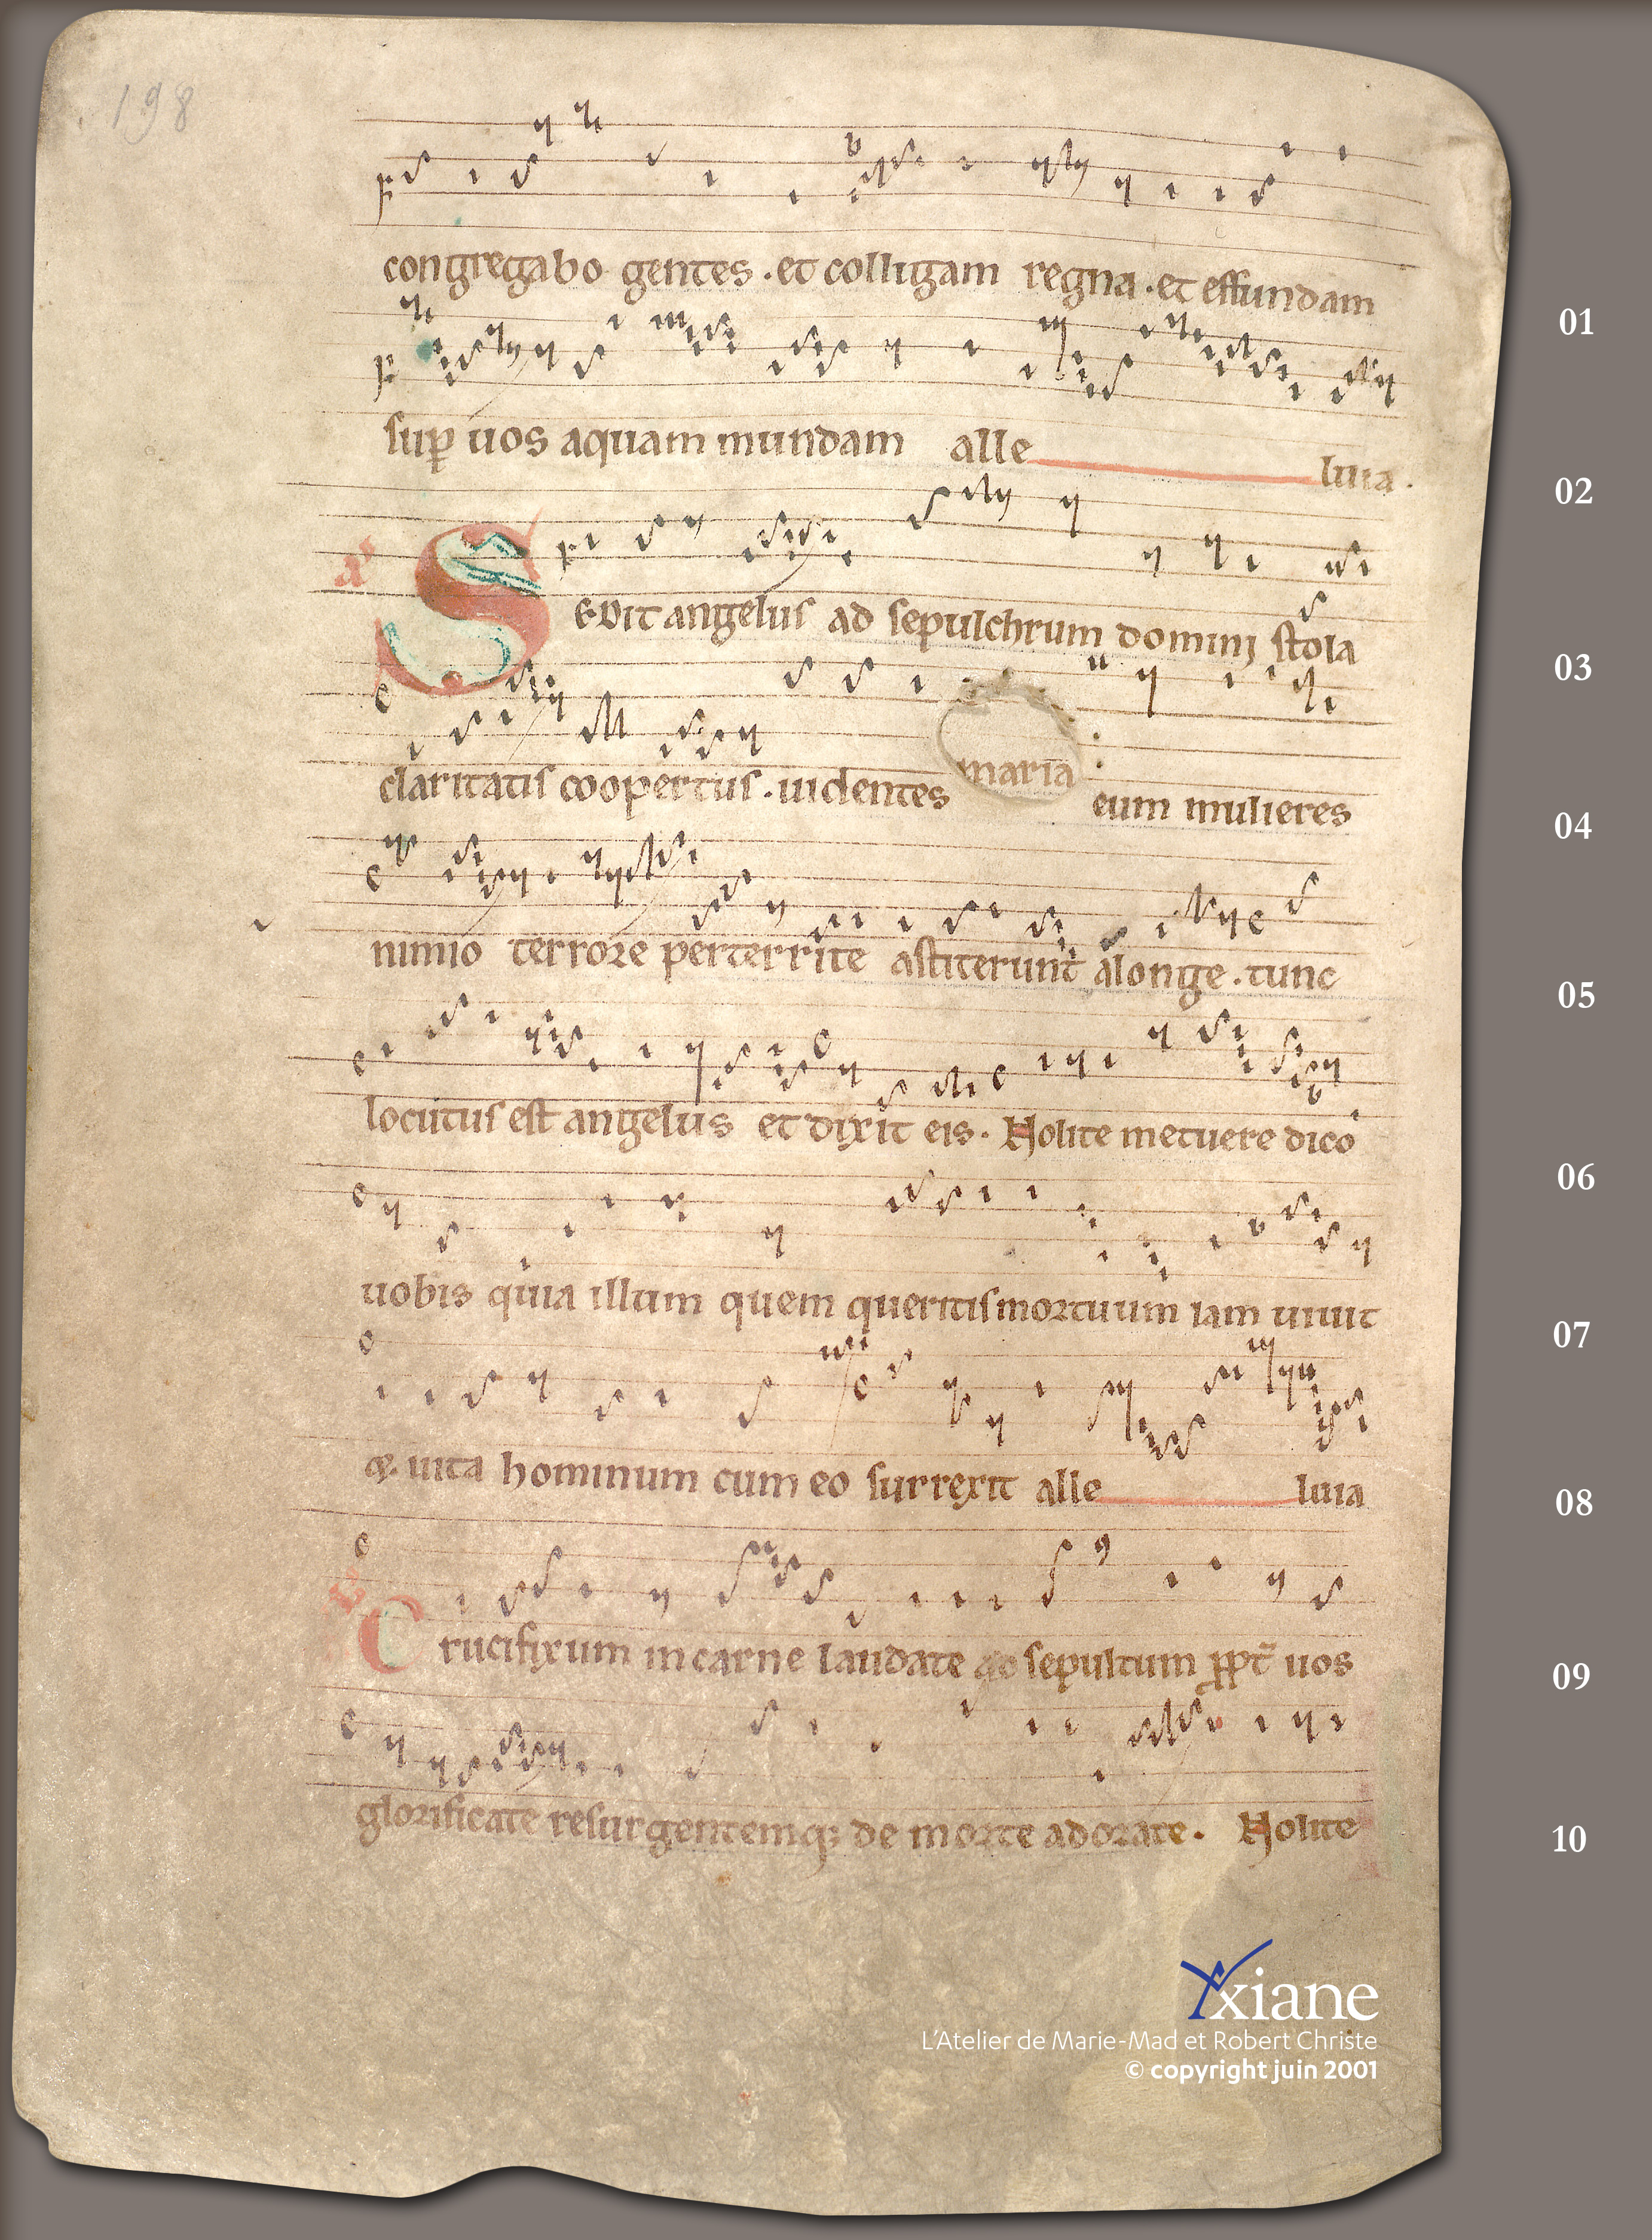 198
congregabo gentes · et colligam regna · et effundam
01
sup uos aquam mundam alle luia ·
02
SEDit angelus ad sepulchrum domini stola
03
claritatis coopertus · uidentes maria eum mulieres
04
nimio terrore perterrite astiterunt alonge · tunc
05
locutus est angelus et dixit eis · Nolite metuere dico
06
uobis quia illum quem queritis mortuum iam uiuit
07
uita hominum cum eo surrexit alle luia
08
Crucifixum in carne laudate sepultum ppt̄ uos
09
glorificate resurgentemq; de morte adorate · Nolite
10
Yxiane
L'Atelier de Marie-Mad et Robert Christe
© copyright juin 2001